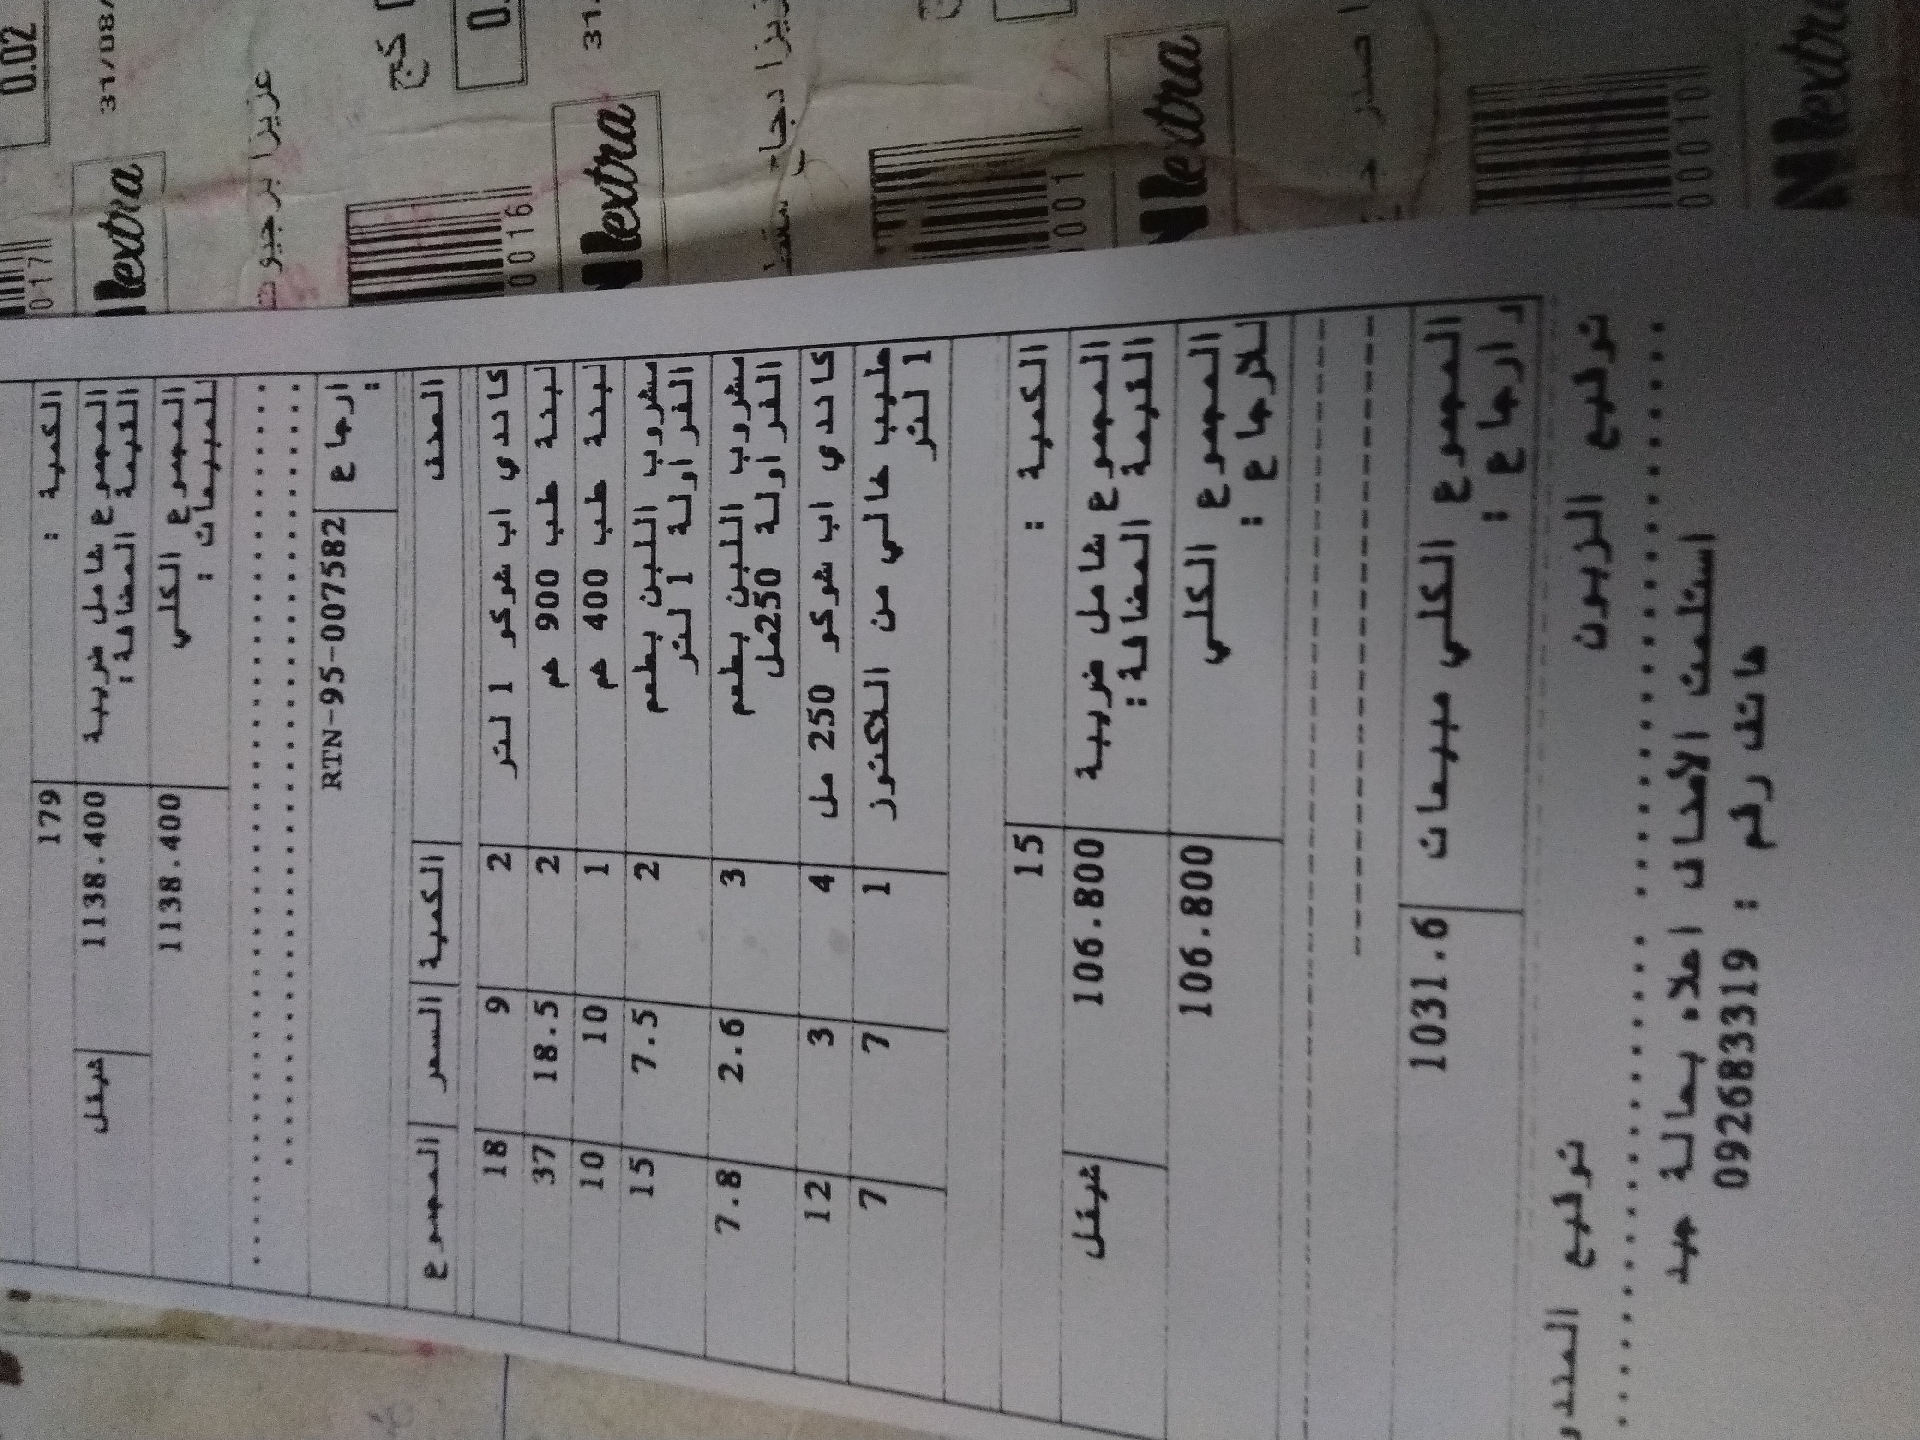 الكمية : 179
المجموع شامل ضريبة القيمة المضافة: 1138.400 شيقل
المجموع الكلي للمبيعات : 1138.400
ارجاع : RTN-95-007582
الصنف الكمية السعر المجموع
كاندي اب شوكو 1 لتر 2 9 18
لبنة طب 900 غم 2 18.5 37
لبنة طب 400 غم 1 10 10
مشروب اللبن بطعم الفراولة 1 لتر 2 7.5 15
مشروب اللبن بطعم الفراولة 250مل 3 2.6 7.8
كاندي اب شوكو 250 مل 4 3 12
حليب خالي من اللاكتوز 1 لتر 1 7 7
الكمية : 15
المجموع شامل ضريبة القيمة المضافة: 106.800 شيقل
المجموع الكلي للارجاع : 106.800
المجموع الكلي مبيعات و ارجاع : 1031.6
توقيع الزبون
توقيع المندو
استلمت الأصناف اعلاه بحالة جيد
هاتف رقم : 092683319
0.02
31/08/
017
Nextra
عزيزا برجيوت
كج
0.
0016
31.
Nextra
عزيزا دجاج
0001
Nextra
00010
Nextra